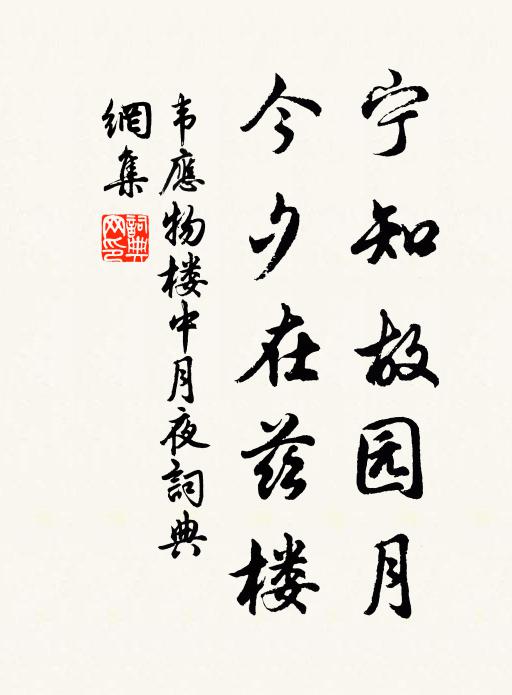 宁知故园月
今夕在兹楼
韦應物楼中月夜詞典
網集
詞典
网印